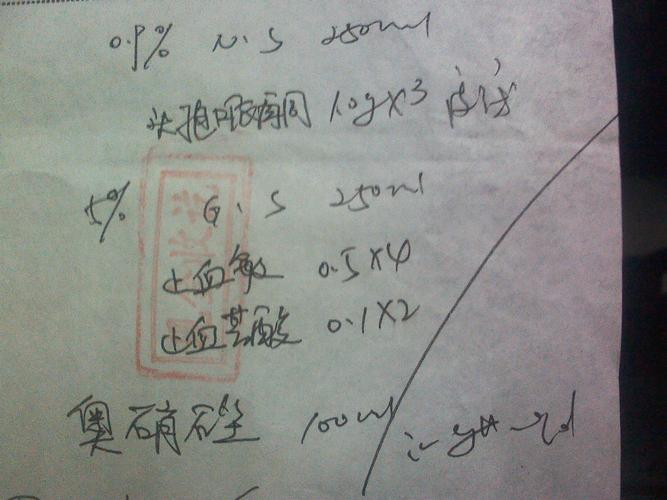 0.9% N.S 250ml
头孢哌酮 1.0g×3 皮试
5% G.S 250ml
止血敏 0.5×4
止血芳酸 0.1×2
奥硝唑 100ml